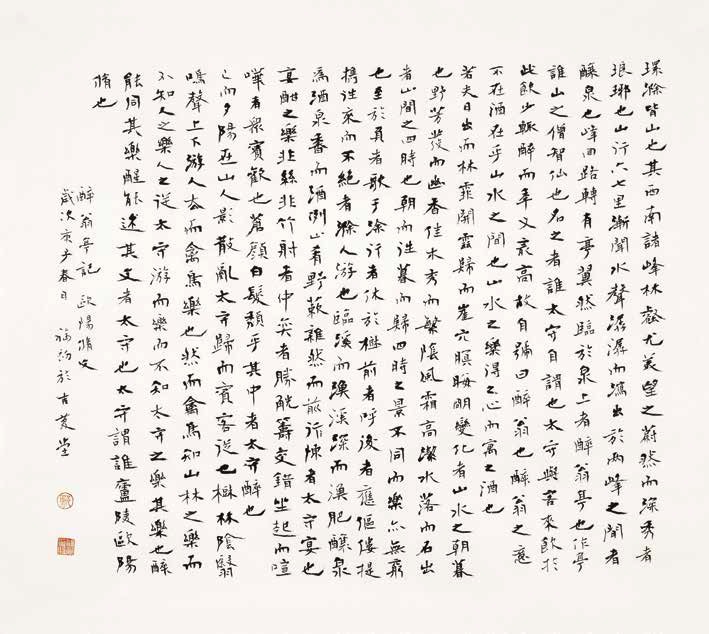 環滁皆山也其西南諸峰林壑尤美望之蔚然而深秀者
琅琊也山行六七里漸聞水聲潺潺而瀉出於兩峰之間者
釀泉也峰回路轉有亭翼然臨於泉上者醉翁亭也作亭
誰山之僧智仙也名之者誰太守自謂也太守與客來飲於
此飲少輒醉而年又最高故自號曰醉翁也醉翁之意
不在酒在乎山水之間也山水之樂得之心而寓之酒也
若夫日出而林霏開雲歸而崖穴暝晦明變化者山水之朝暮
也野芳發而幽香佳木秀而繁陰風霜高潔水落而石出
者山間之四時也朝而往暮而歸四時之景不同而樂亦無窮
也至於負者歌于滁行者休於樹前者呼後者應傴僂提
攜往來而不絕者滁人游也臨溪而漁溪深而漁肥釀泉
為酒泉香而酒洌山肴野蔌雜然而前行陳者太守宴也
宴酣之樂非絲非竹射者中奕者勝觥籌交錯坐起而喧
嘩者眾賓歡也蒼顏白髮頹乎其中者太守醉也
已而夕陽在山人影散亂太守歸而賓客從也樹林陰翳
鳴聲上下游人去而禽鳥樂也然而禽鳥知山林之樂而
不知人之樂人之從太守游而樂而不知太守之樂其樂也醉
能同其樂醒能述其文者太守也太守謂誰廬陵歐陽
脩也
醉翁亭記 歐陽脩文
歲次庚子春日 於古堂